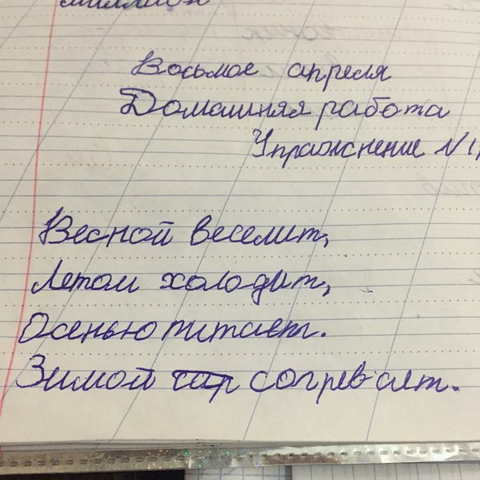 миллион
Восьмое апреля
Домашняя работа
Упражнение №1
Весной веселит,
Летом холодит,
Осенью питает.
Зимой согревает.